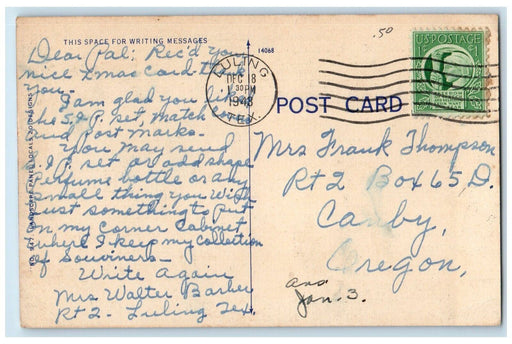 THIS SPACE FOR WRITING MESSAGES
14068
.50
U.S. POSTAGE
Dear Pal: Rec'd your
nice Xmas card thank
you.
I am glad you liked
the S.&P. set, match
and Post marks.
You may send
S.&P. set or odd shape
Perfume bottle or any
small thing you wish
just something to put
in my corner Cabinet
where I keep my collection
of Souviners—
Write again
Mrs Walter Barber
Rt 2 - Luling Tex.
LULING
DEC 18
30 PM
1943
TEX.
POST CARD
Mrs Frank Thompson
Rt 2 Box 65 D.
Canby,
Oregon,
ans
Jan. 3.